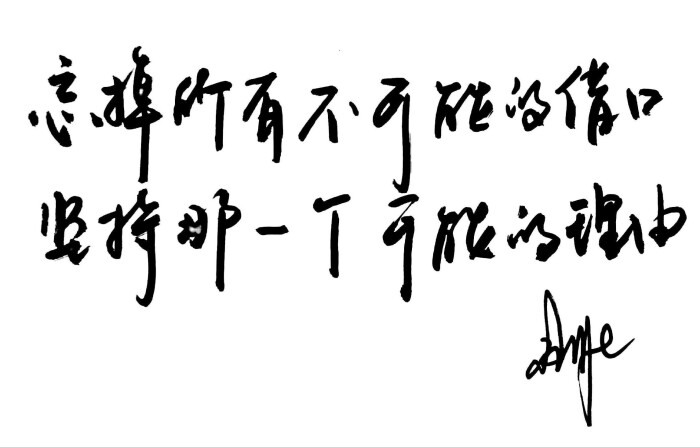 忘掉所有不可能的借口
坚持那一个可能的理由